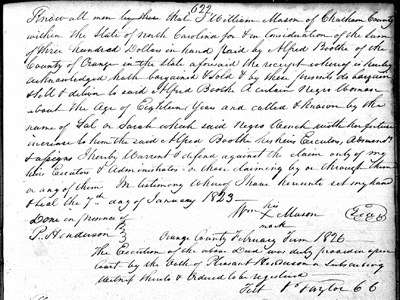 622
Know all men by these that I William Mason of Chatham County
within the State of North Carolina for & in Consideration of the Sum
of three hundred Dollars in hand paid by Alfred Boothe of the
County of Orange in the state aforesaid the receipt whereof is hereby
acknowledged hath bargained & Sold & by these presents do bargain
& Sell & deliver to said Alfred Boothe A certain Negro Woman
about the Age of Eighteen Years and called & known by the
name of Sal or Sarah which said Negro Wench with her future
increase to him the said Alfred Boothe his heirs Executors Administr
& assigns I hereby Warrant & defend against the claim only of my
heirs Executors & Administrators or those claiming by or through them
or any of them In testimony Whereof I have hereunto set my hand
& seal the 7th day of January 1823
Done in presence of
Wm his X mark Mason
P. Henderson
Orange County February Term 1826
The Execution of the above Deed was duly proved in open
Court by the Oath of Pleasant Henderson a Subscribing
witness thereto & Ordered to be registered
Test J Taylor CC